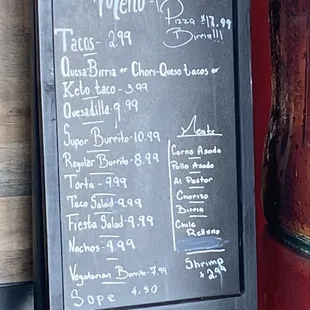 Menu -
Pizza $17.99
Birria!!!
Tacos - 2.99
QuesaBirria or Chori-Queso tacos or
Keto taco - 3.99
Quesadilla 9.99
Super Burrito - 10.99
Regular Burrito - 8.99
Torta - 9.99
Taco Salad - 9.99
Fiesta Salad - 9.99
Nachos - 9.99
Vegetarian Burrito - 7.99
Sope 4.50
Meats
Carne Asada
Pollo Asado
Al Pastor
Chorizo
Birria
Chile
Relleno
Shrimp
+ 2.99